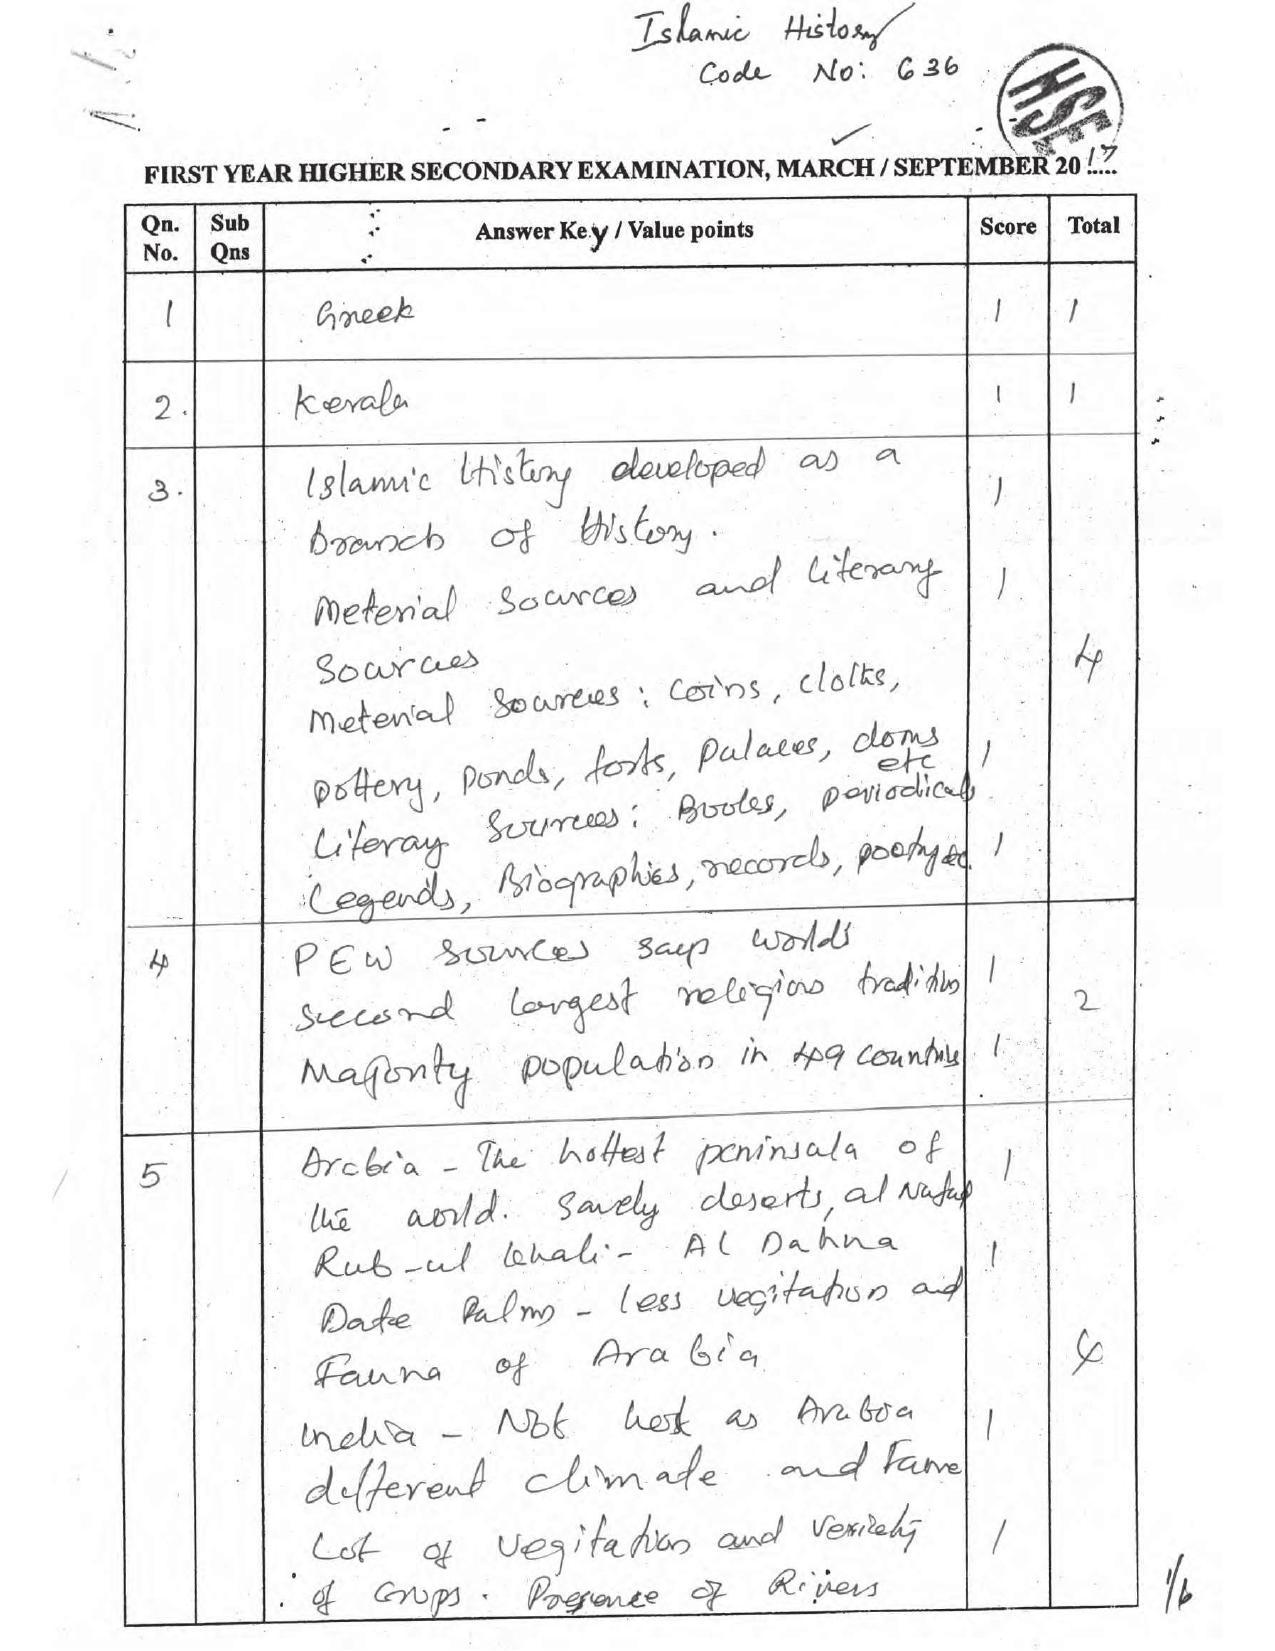 Islamic History
Code No: 636
HSE
FIRST YEAR HIGHER SECONDARY EXAMINATION, MARCH / SEPTEMBER 2017
Qn. No. Sub Qns Answer Key / Value points Score Total
1 Greek 1 1
2. Kerala 1 1
3. Islamic History developed as a 1
branch of History.
Meterial Sources and literary 1
Sources 4
Meterial Sources: Coins, cloths,
pottery, ponds, forts, Palaces, doms etc 1
Literay Sources: Books, periodicals
Legends, Biographies, records, poetry etc. 1
4 PEW sources says worlds 1
second largest religious tradition 2
Majority population in 49 countries 1
5 Arabia - The hottest peninsala of 1
the world. Sandy deserts, al Nafud
Rub-ul khali - Al Dahna 1
Date Palms - less vegitation and
Fauna of Arabia 4
India - Not hot as Arabia 1
different climate and
Lot of vegitation and 1
of Crops. Presence of Rivers
1/6